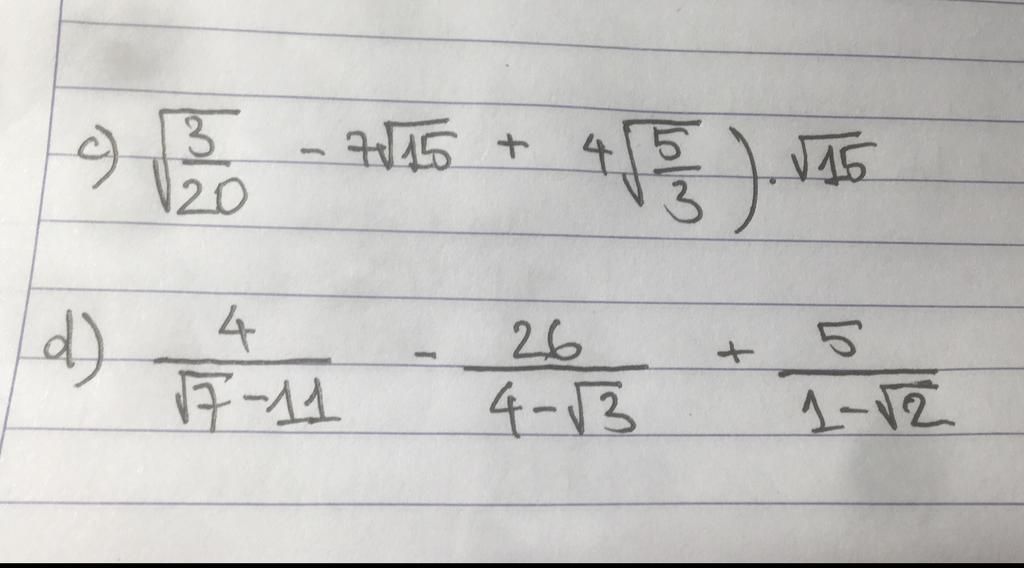 c) √(3/20) - 7√15 + 4√(5/3) ) . √15
d) 4/(√7 - 11) - 26/(4 - √3) + 5/(1 - √2)